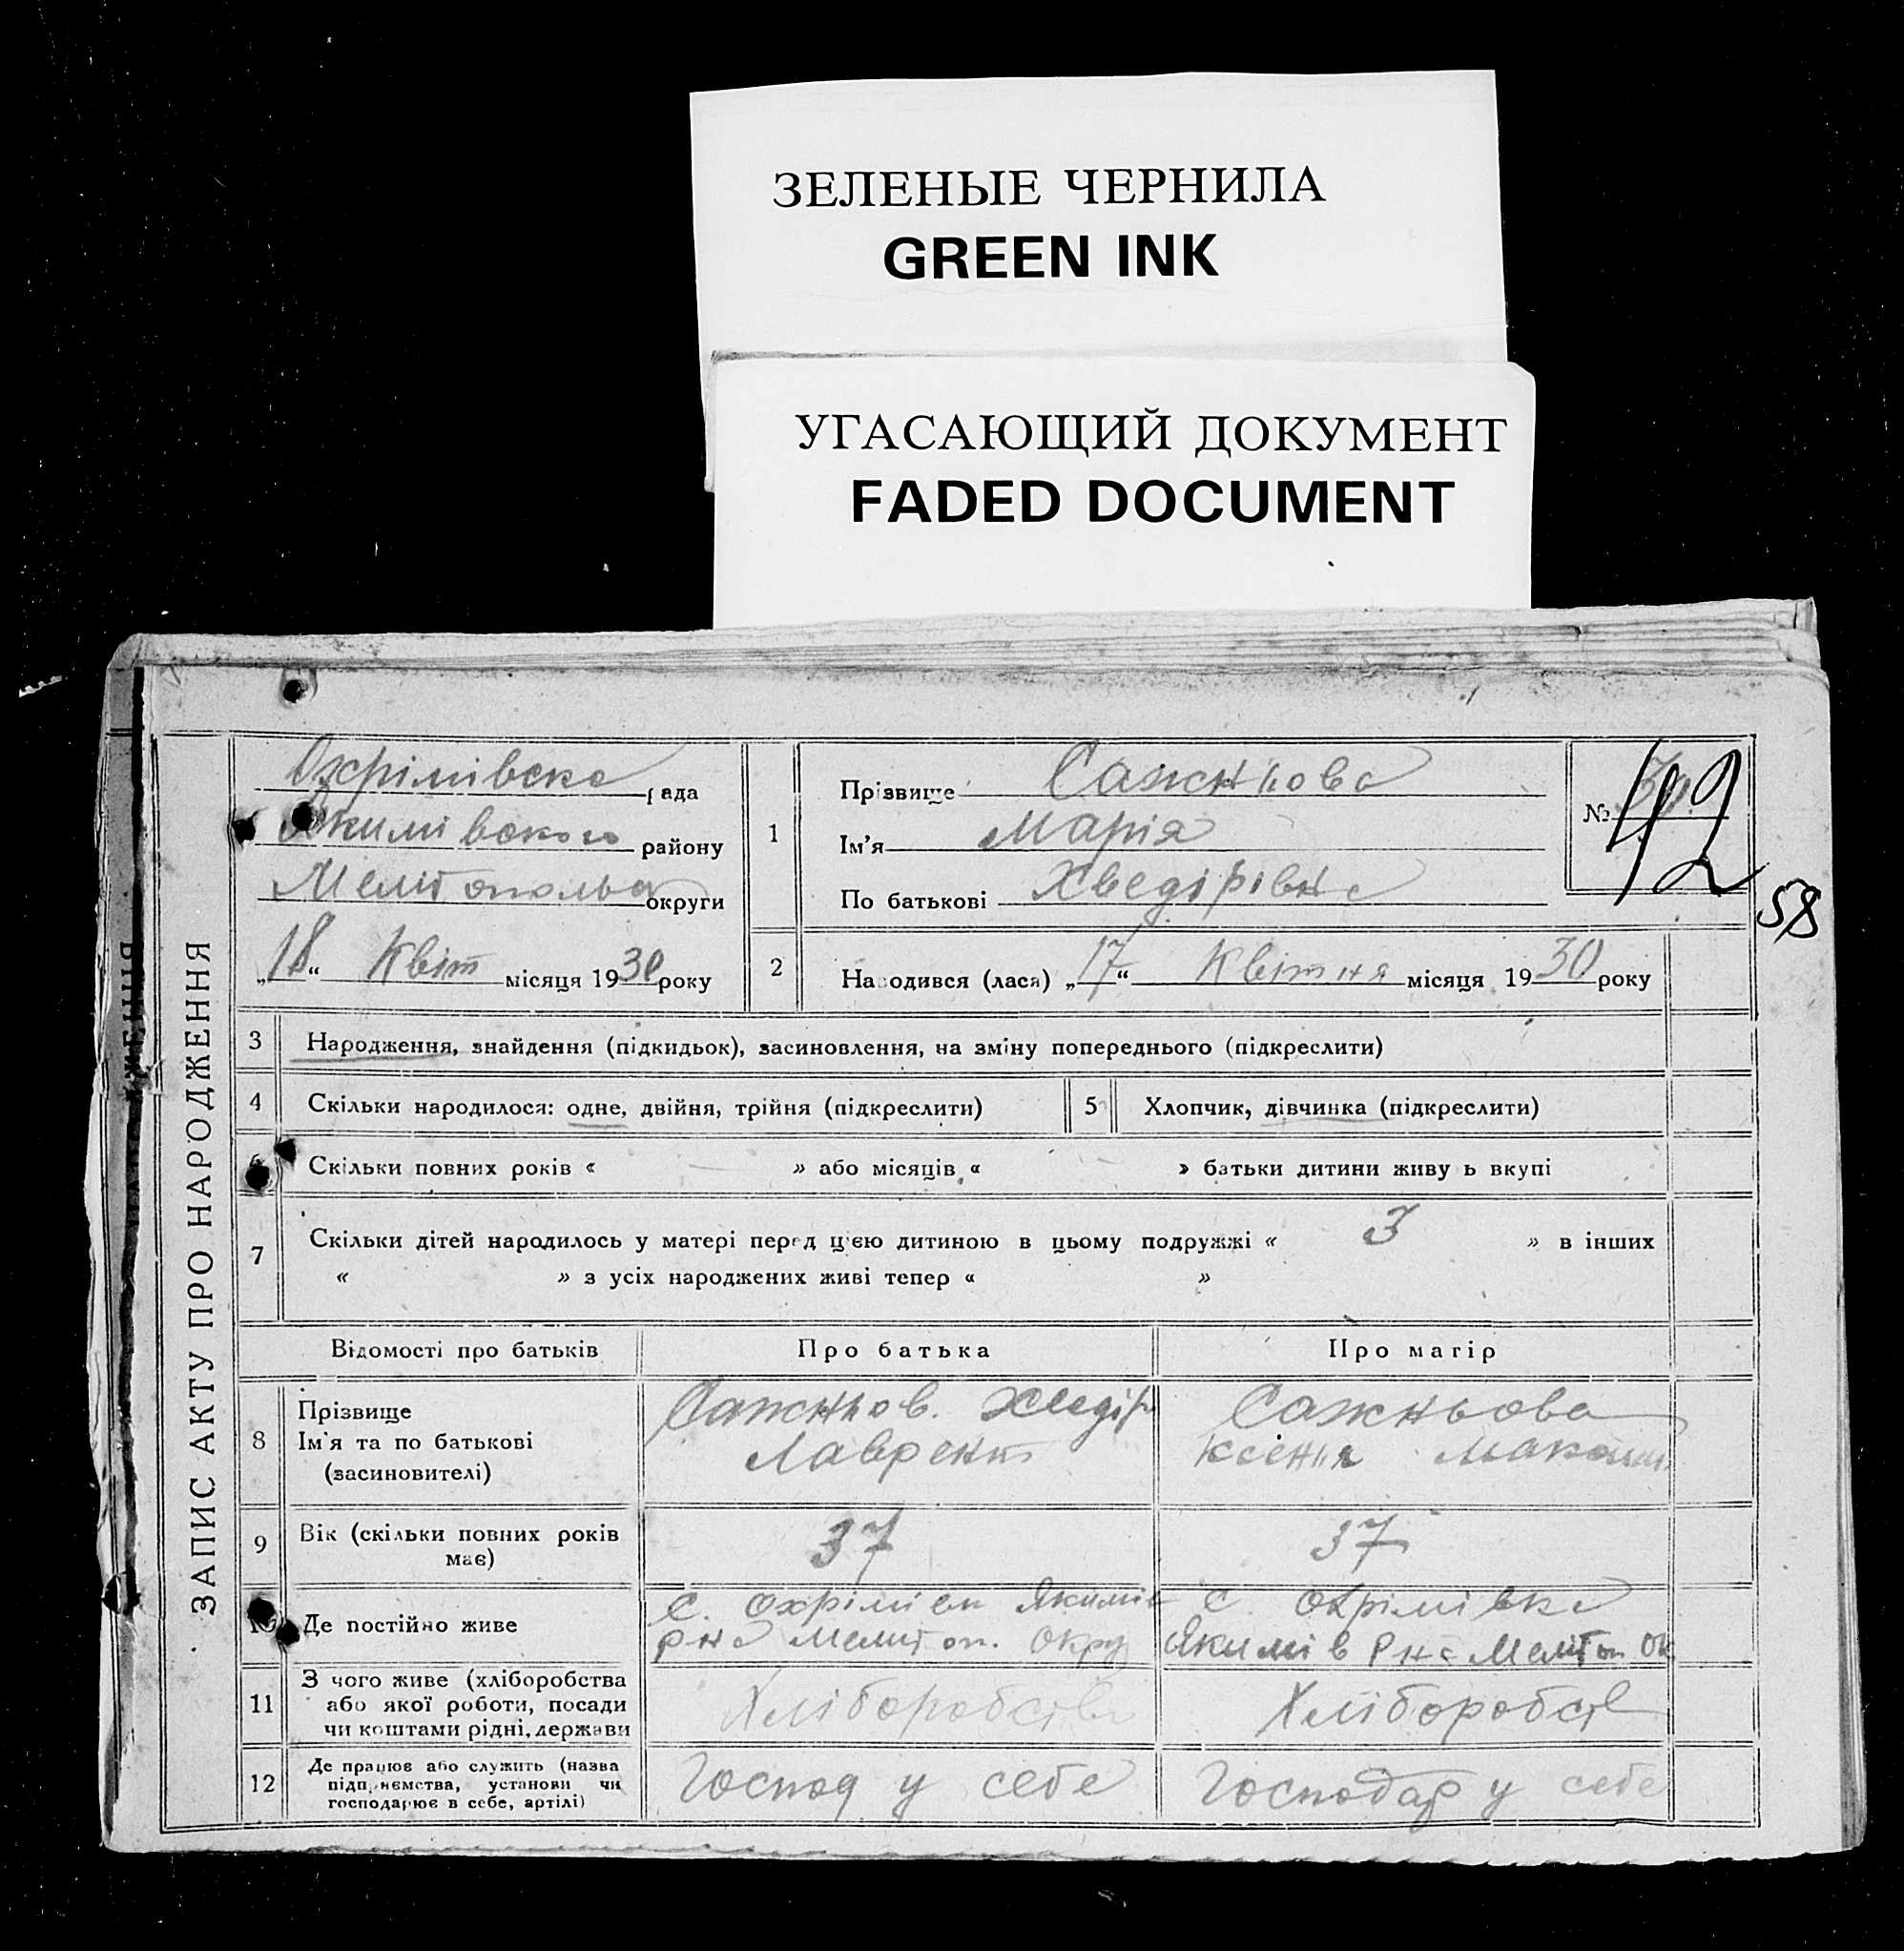 ЗЕЛЕНЫЕ ЧЕРНИЛА
GREEN INK
УГАСАЮЩИЙ ДОКУМЕНТ
FADED DOCUMENT
ЗАПИС АКТУ ПРО НАРОДЖЕННЯ
Охрімівска рада
Якимівского району
Меліт округи
„18“ Квіт місяця 1930 року
1
Прізвище Сажньова
Ім'я Марія
По батькові Хведірівна
№ 42
58
2
Народився (лася) „17“ Квітня місяця 1930 року
3 Народження, знайдення (підкидьок), засиновлення, на зміну попереднього (підкреслити)
4 Скільки народилося: одне, двійня, трійня (підкреслити)
5 Хлопчик, дівчинка (підкреслити)
6 Скільки повних років « » або місяців « » батьки дитини живуть вкупі
7 Скільки дітей народилось у матері перед цією дитиною в цьому подружжі « 3 » в інших
« » з усіх народжених живі тепер « »
Відомості про батьків
Про батька
Про матір
8
Прізвище
Ім'я та по батькові
(засиновителі)
Сажньов. Хведір
Лаврент
Сажньова
Ксенія
9
Вік (скільки повних років
має)
37
37
10 Де постійно живе
с. Охрімівк Якимів
рна Меліт оп. окру
с. Охрімівка
Якимів Рна Меліт оп Ок
11
З чого живе (хліборобства
або якої роботи, посади
чи коштами рідні, держави
Хліборобств
Хліборобст
12
Де працює або служить (назва
підприємства, установи чи
господарює в себе, артілі)
Господ у себе
Господар у себе